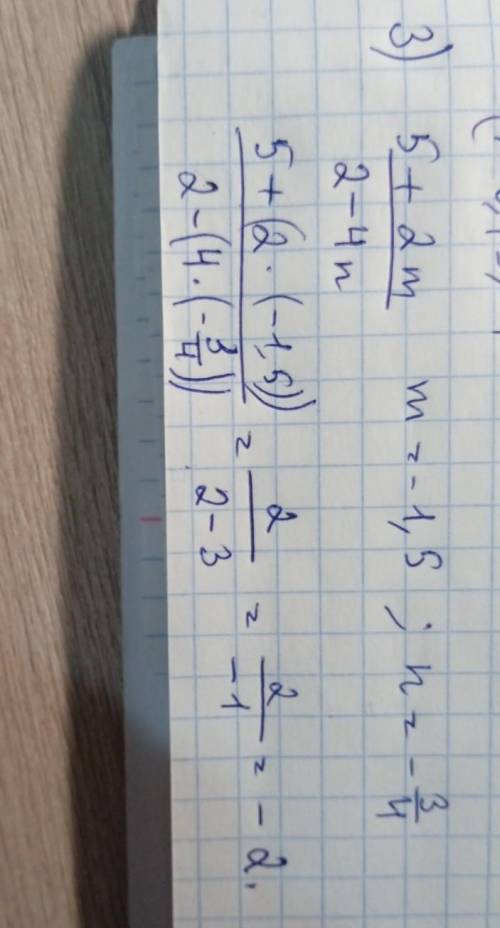 3) (5 + 2m)/(2 - 4n) m = -1,5 ; n = -3/4
(5 + (2 · (-1,5)))/(2 - (4 · (-3/4))) = 2/(2 - 3) = 2/(-1) = -2.